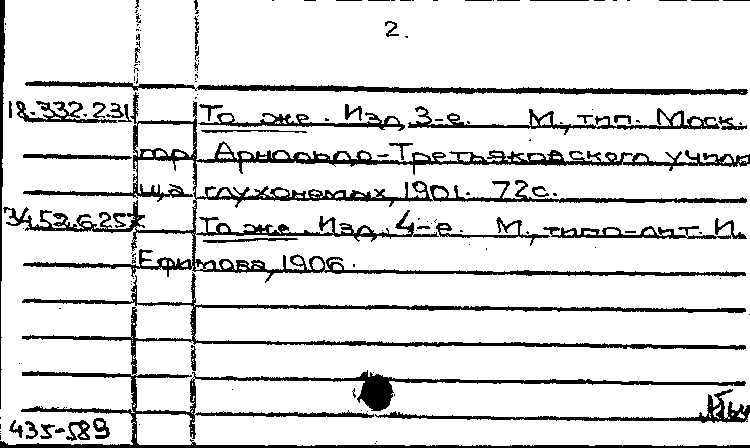 2.
18.332.231 То же. Изд. 3-е. М., тип. Моск.
гор. Арнольдо-Третьяковского учили
ща глухонемых, 1901. 72с.
34.52.6.257 То же. Изд. 4-е. М., типо-лит. И.
Ефимова, 1906.
435-589